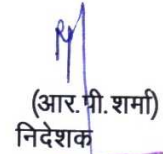 (आर.पी.शर्मा)
निदेशक